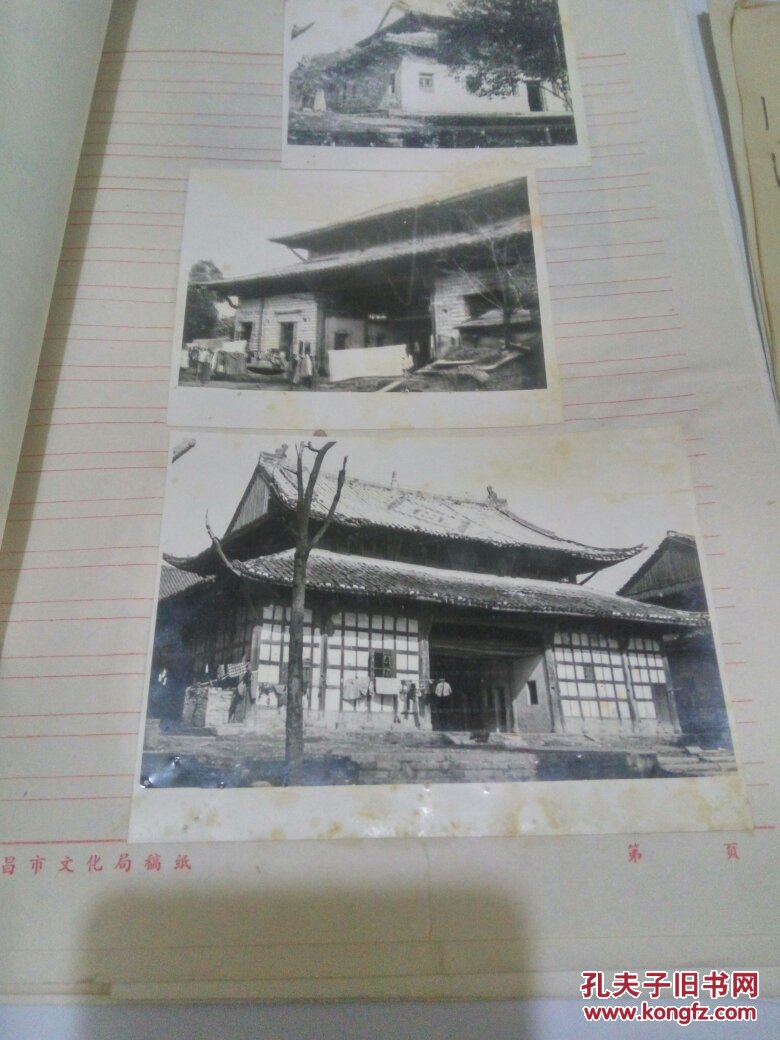 昌市文化局稿纸
第 頁
孔夫子旧书网
www.kongfz.com